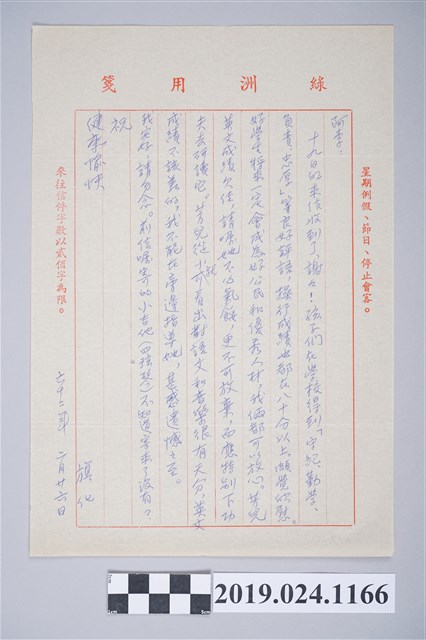 綠洲用箋
星期例假、節日、停止會客。
阿李：
十九日的來信收到了，謝々！孩子們在學校得到「守紀、勤學、
負責、忠厚」等良好評語，操行成績也都在八十分以上，頗覺欣慰。
好學生將來一定會成為好公民和優秀人材，我倆都可以放心。英兒
英文成績欠佳，請囑她不必氣餒，更不可放棄，而應特別下功
夫去研讀它。英兒從小就看出對語文和音樂很有天分，英文
成績不該差的，我不能在旁邊指導她，甚感遺憾之至。
我安好，請勿念。前信囑寄的小吉他（四弦琴）不知道寄來了沒有？
祝
健康愉快
旗化
六十二年二月廿六日
來往信件字數以貳佰字為限。
2019.024.1166